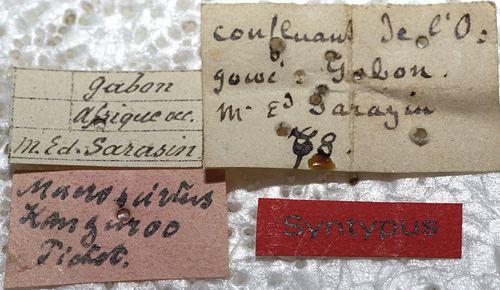 gabon
Afrique oc.
M. Ed. Sarasin.
confluant de l'O.
gowé. Gabon.
Mr Ed Sarazin
78.
Macroscirtus
Kanguroo
Pictet.
Syntypus